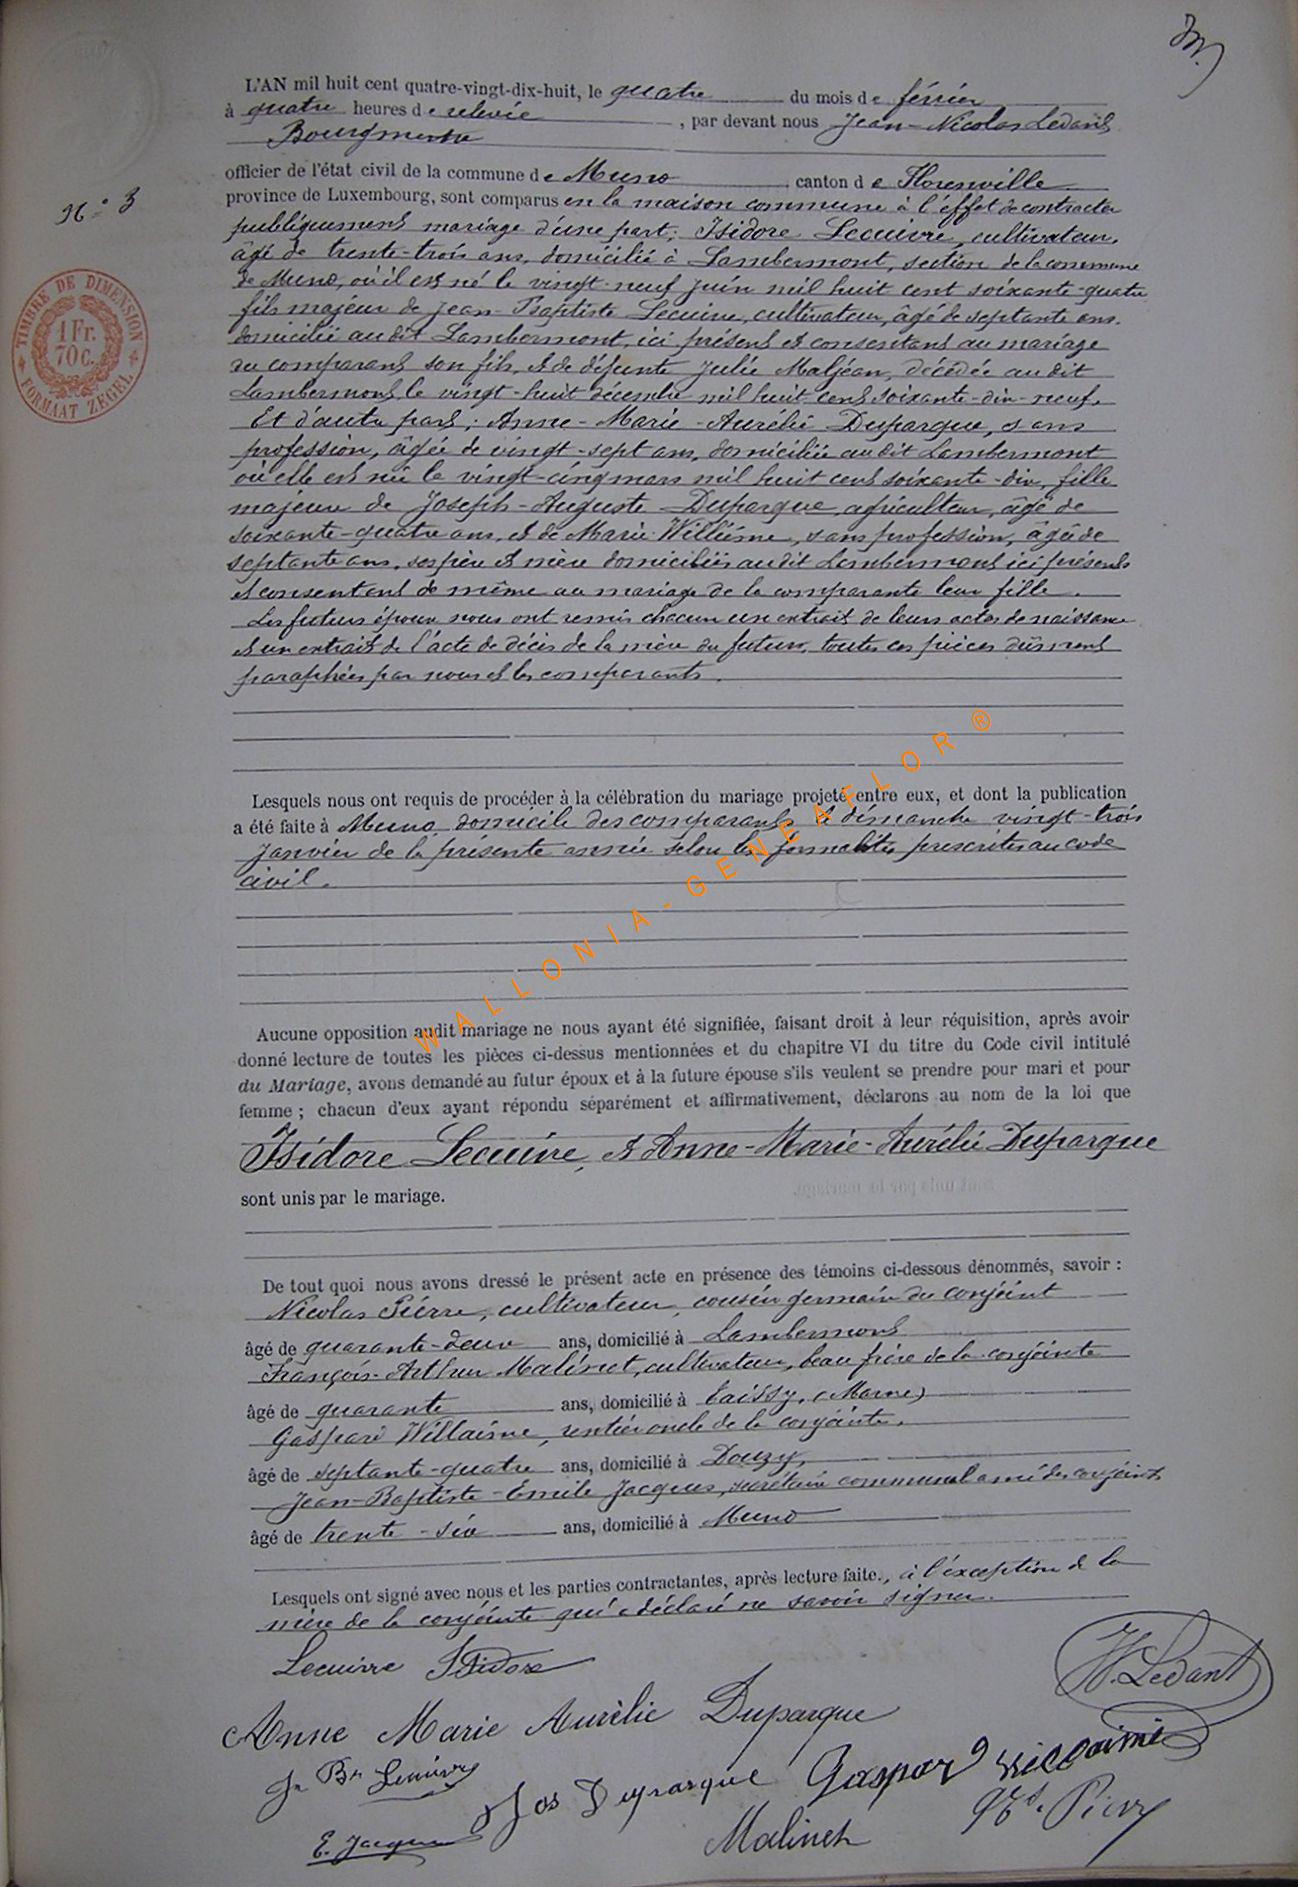 L'AN mil huit cent quatre-vingt-dix-huit, le quatre du mois de février
à quatre heures de relevée, par devant nous Jean-Nicolas Ledant
Bourgmestre
officier de l'état civil de la commune de Muno canton de Florenville
N° 3
province de Luxembourg, sont comparus en la maison commune à l'effet de contracter
publiquement mariage d'une part; Isidore Lecuivre, cultivateur,
âgé de trente-trois ans, domicilié à Lambermont, section de la commune
de Muno, où il est né le vingt-neuf juin mil huit cent soixante-quatre
fils majeur de Jean-Baptiste Lecuivre, cultivateur, âgé de septante ans.
TIMBRE DE DIMENSION
1 Fr.
70 c.
FORMAAT ZEGEL
domicilié audit Lambermont, ici présent et consentant au mariage
du comparant son fils, et de défunte Julie Maljean, décédée audit
Lambermont, le vingt-huit décembre mil huit cent soixante-dix-neuf,
Et d'autre part; Anne-Marie-Aurélie Duparque, sans
profession, âgée de vingt-sept ans, domiciliée audit Lambermont
où elle est née le vingt-cinq mars mil huit cent soixante-dix, fille
majeure de Joseph-Auguste Duparque, agriculteur, âgé de
soixante-quatre ans, et de Marie Willième, sans profession, âgée de
septante ans, ses père et mère domiciliés audit Lambermont ici présents
et consentant de même au mariage de la comparante leur fille.
Les futurs époux nous ont remis chacun un extrait de leurs actes de naissance
et un extrait de l'acte de décès de la mère du futur, toutes ces pièces dûment
paraphées par nous et les comparants.
Lesquels nous ont requis de procéder à la célébration du mariage projeté entre eux, et dont la publication
a été faite à Muno domicile des comparants le dimanche vingt-trois
janvier de la présente année selon les formalités prescrites au code
civil.
WALLONIA-GENEAFLOR ®
Aucune opposition audit mariage ne nous ayant été signifiée, faisant droit à leur réquisition, après avoir
donné lecture de toutes les pièces ci-dessus mentionnées et du chapitre VI du titre du Code civil intitulé
du Mariage, avons demandé au futur époux et à la future épouse s'ils veulent se prendre pour mari et pour
femme ; chacun d'eux ayant répondu séparément et affirmativement, déclarons au nom de la loi que
Isidore Lecuivre, et Anne-Marie-Aurélie Duparque
sont unis par le mariage.
De tout quoi nous avons dressé le présent acte en présence des témoins ci-dessous dénommés, savoir :
Nicolas Pierre, cultivateur, cousin germain du conjoint
âgé de quarante-deux ans, domicilié à Lambermont
François-Arthur Malinet, cultivateur, beau frère de la conjointe
âgé de quarante ans, domicilié à Taissy, (Marne)
Gaspard Willaime, rentier oncle de la conjointe.
âgé de septante-quatre ans, domicilié à Douzy,
Jean-Baptiste-Emile Jacques, secrétaire communal ami des conjoints
âgé de trente-six ans, domicilié à Muno
Lesquels ont signé avec nous et les parties contractantes, après lecture faite., à l'exception de la
mère de la conjointe qui a déclaré ne savoir signer.
Lecuivre Isidore
Ledant
Anne Marie Aurélie Duparque
Jn Bte Lecuivre
Jos Duparque Gaspard Willaime
E. Jacques
Malinet
Nas. Pierre